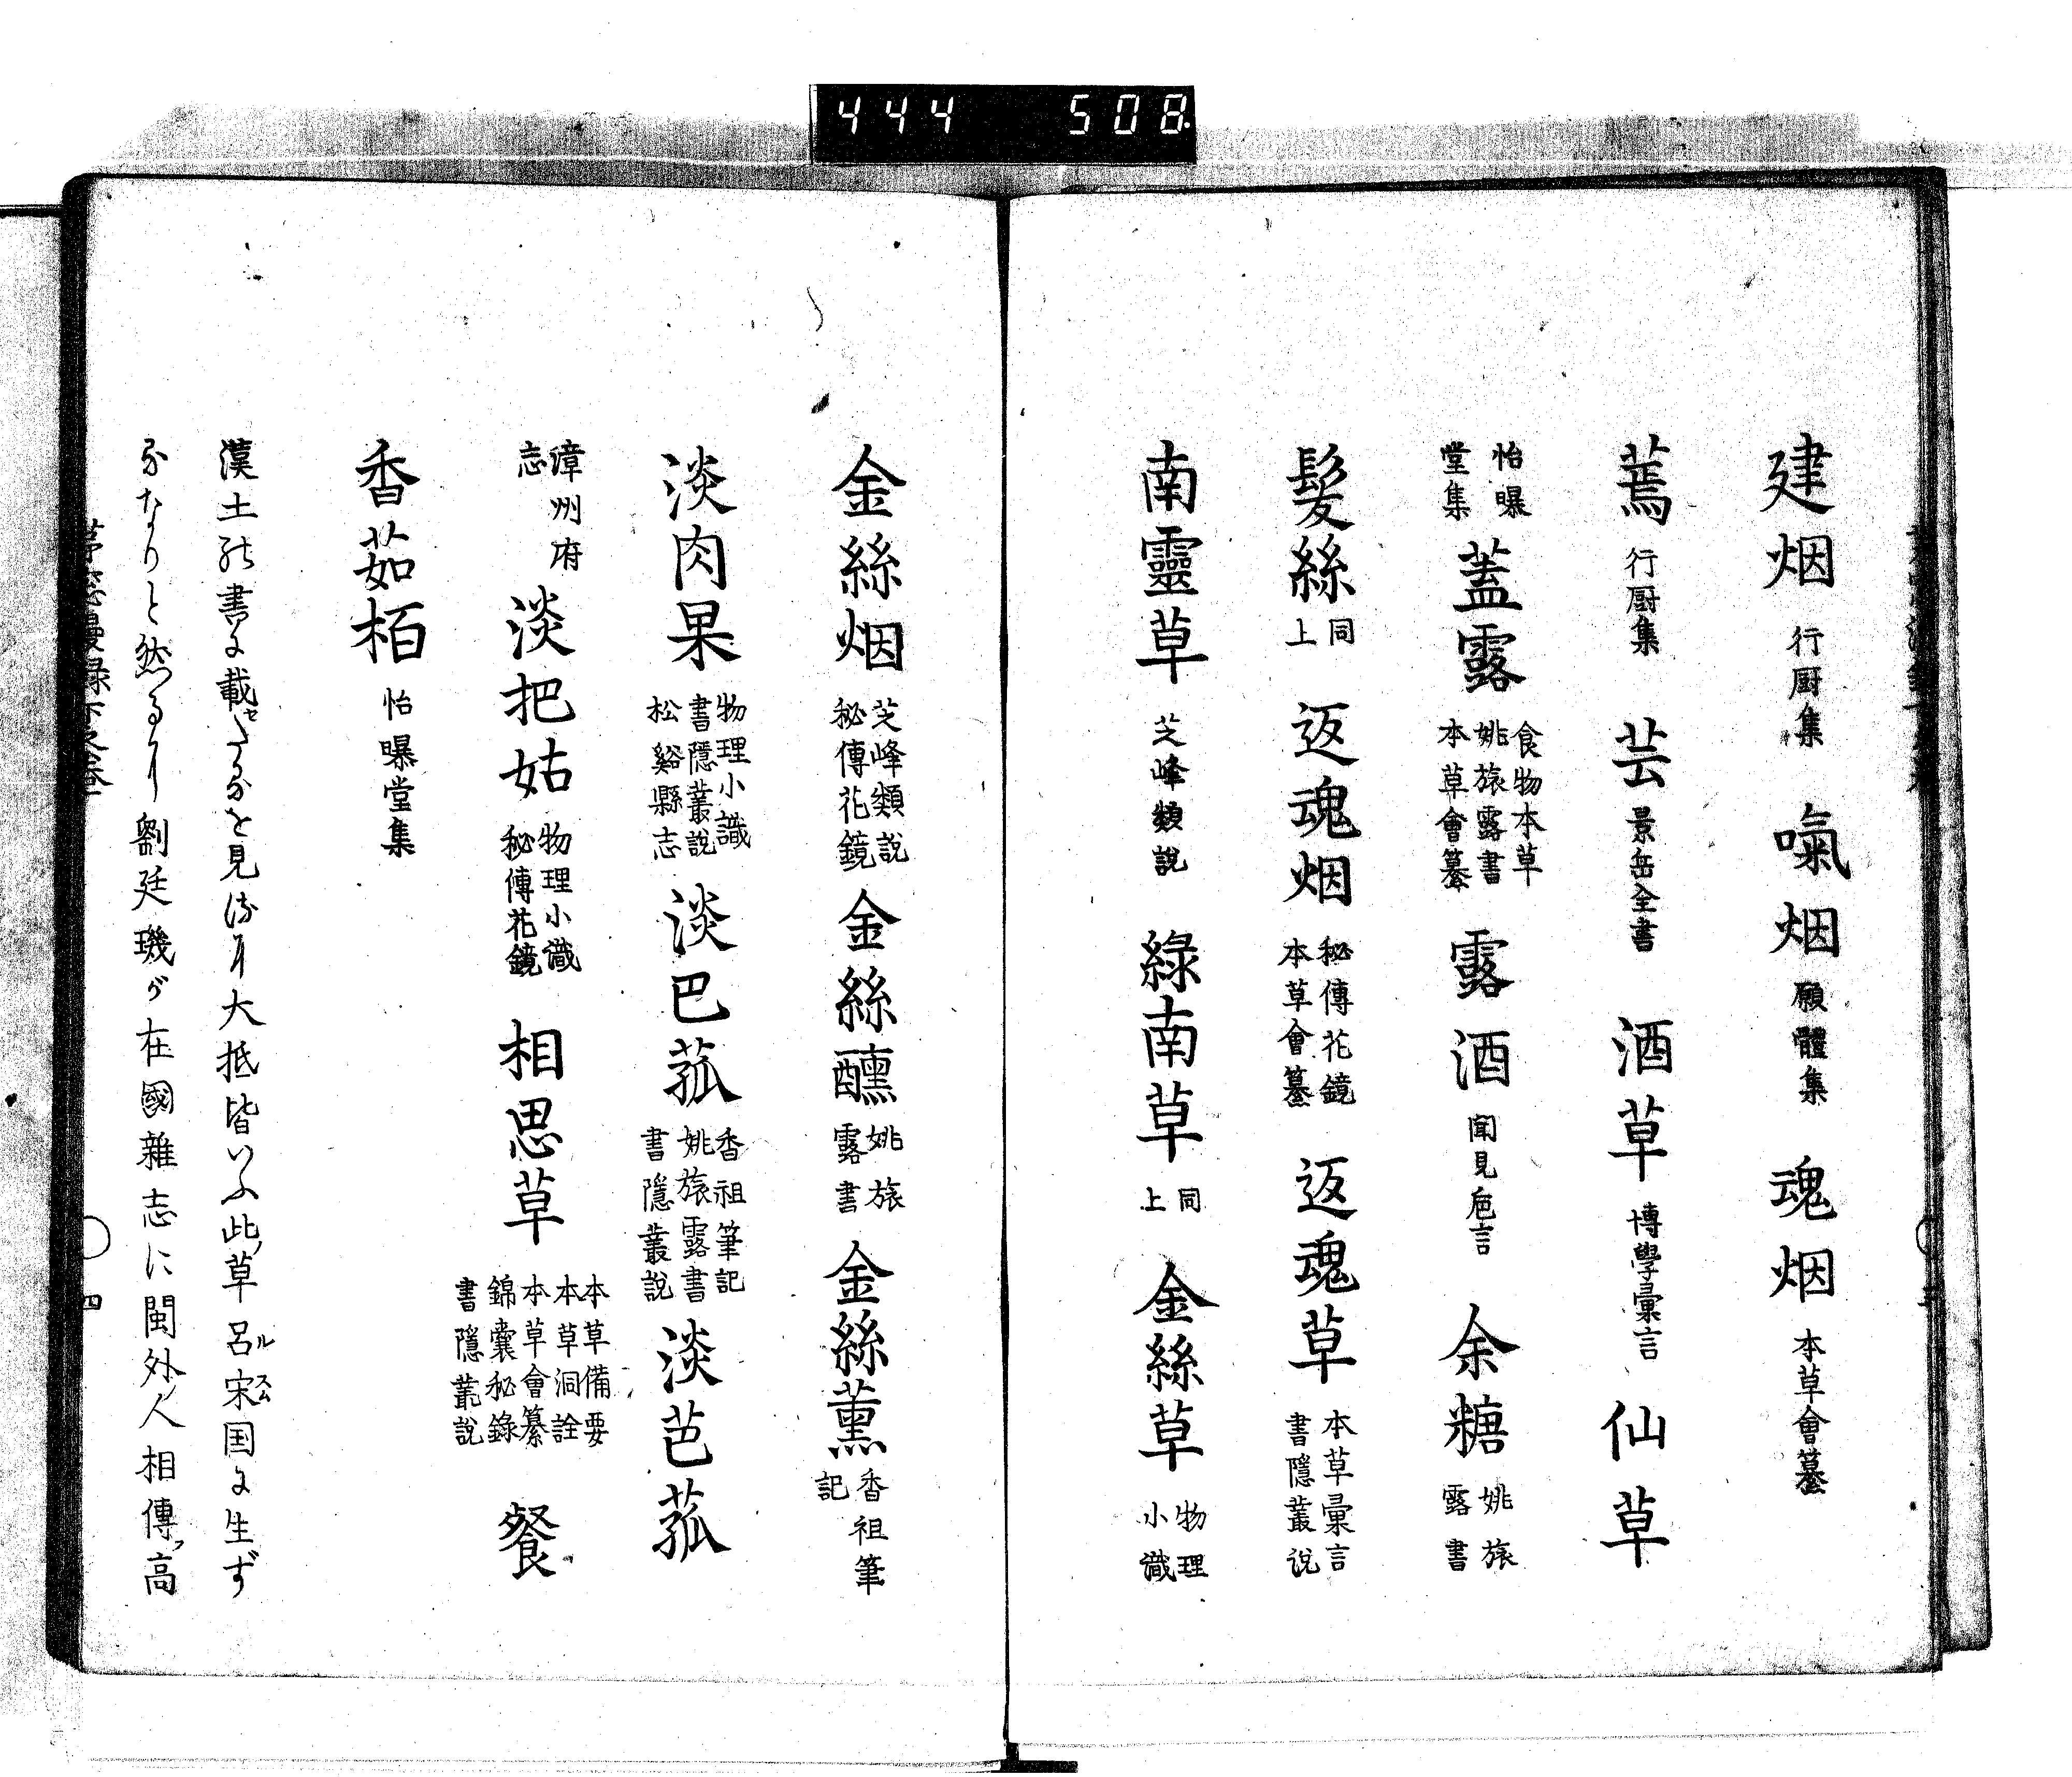 444 508
建烟 行厨集 噏烟 願體集 魂烟 本草會纂
蔫 行厨集 芸 景岳全書 酒草 博學彙言 仙草
怡曝堂集 蓋露 食物本草 姚旅露書 本草會纂 露酒 聞見卮言 余糖 姚旅露書
髮絲 同上 返魂烟 秘傳花鏡 本草會纂 返魂草 本草彙言 書隱叢説
南靈草 芝峰類説 綠南草 同上 金絲草 物理小識
金絲烟 芝峰類説 秘傳花鏡 金絲醺 姚旅露書 金絲薫 香祖筆記
淡肉果 物理小識 書隱叢説 松谿縣志 淡巴菰 香祖筆記 姚旅露書 書隱叢説 淡芭菰
漳州府志 淡把姑 物理小識 秘傳花鏡 相思草 本草備要 本草洞詮 本草會纂 錦囊秘錄 書隱叢説 餐
香茹栢 怡曝堂集
漢土の書に載せたるを見るに大抵皆いふ此ノ草呂宋国に生ず
るなりと然るに劉廷璣が在國雜志に閩外ノ人相傳フ高
四